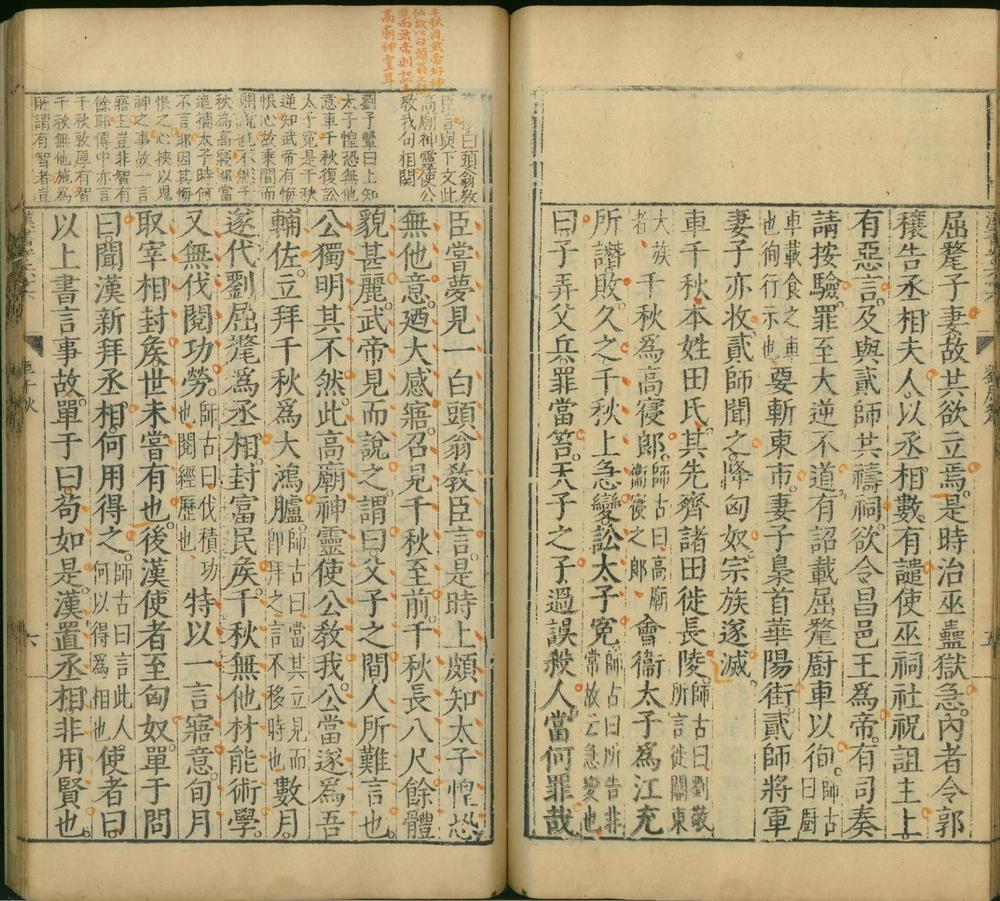 屈氂子妻故共欲立焉是時治巫蠱獄急內者令郭
穰告丞相夫人以丞相數有譴使巫祠社祝詛主上
有惡言及與貳師共禱祠欲令昌邑王為帝有司奏
請按驗罪至大逆不道有詔載屈氂廚車以徇師古曰廚
車載食之車也徇行示也要斬東市妻子梟首華陽街貳師將軍
妻子亦收貳師聞之降匈奴宗族遂滅
車千秋本姓田氏其先齊諸田徙長陵師古曰劉敬所言徙關東
大族者千秋為高寑郎師古曰高廟衞寑之郎會衞太子為江充
所譖敗久之千秋上急變訟太子冤師古曰所告非常故云急變也
曰子弄父兵罪當笞天子之子過誤殺人當何罪哉
臣嘗夢見一白頭翁敎臣言是時上頗知太子惶恐
無他意廼大感寤召見千秋至前千秋長八尺餘體
貌甚麗武帝見而說之謂曰父子之閒人所難言也
公獨明其不然此高廟神靈使公敎我公當遂為吾
輔佐立拜千秋為大鴻臚師古曰當其立見而即拜之言不移時也數月
遂代劉屈氂為丞相封富民矦千秋無他材能術學
又無伐閱功勞師古曰伐積功也閱經歷也特以一言寤意旬月
取宰相封矦世未嘗有也後漢使者至匈奴單于問
曰聞漢新拜丞相何用得之師古曰言此人何以得為相也使者曰
以上書言事故單于曰苟如是漢置丞相非用賢也
白頭翁敎
臣言與下文此
高廟神靈使公
敎我句相關
劉子翬曰上知
太子惶恐無他
意車千秋復訟
太子冤是千秋
逆知武帝有悔
恨心故乘閒而
秋為高寑郎當
追捕太子時何
不言耶因其悔
恨之心挾以鬼
神之事故一言
寤主豈非智有
餘耶傳中亦言
千秋敦厚有智
千秋無他施為
所謂有智者豈
千秋因武帝好神
仙故以白頭翁
高廟神靈耳
車千秋
六
五